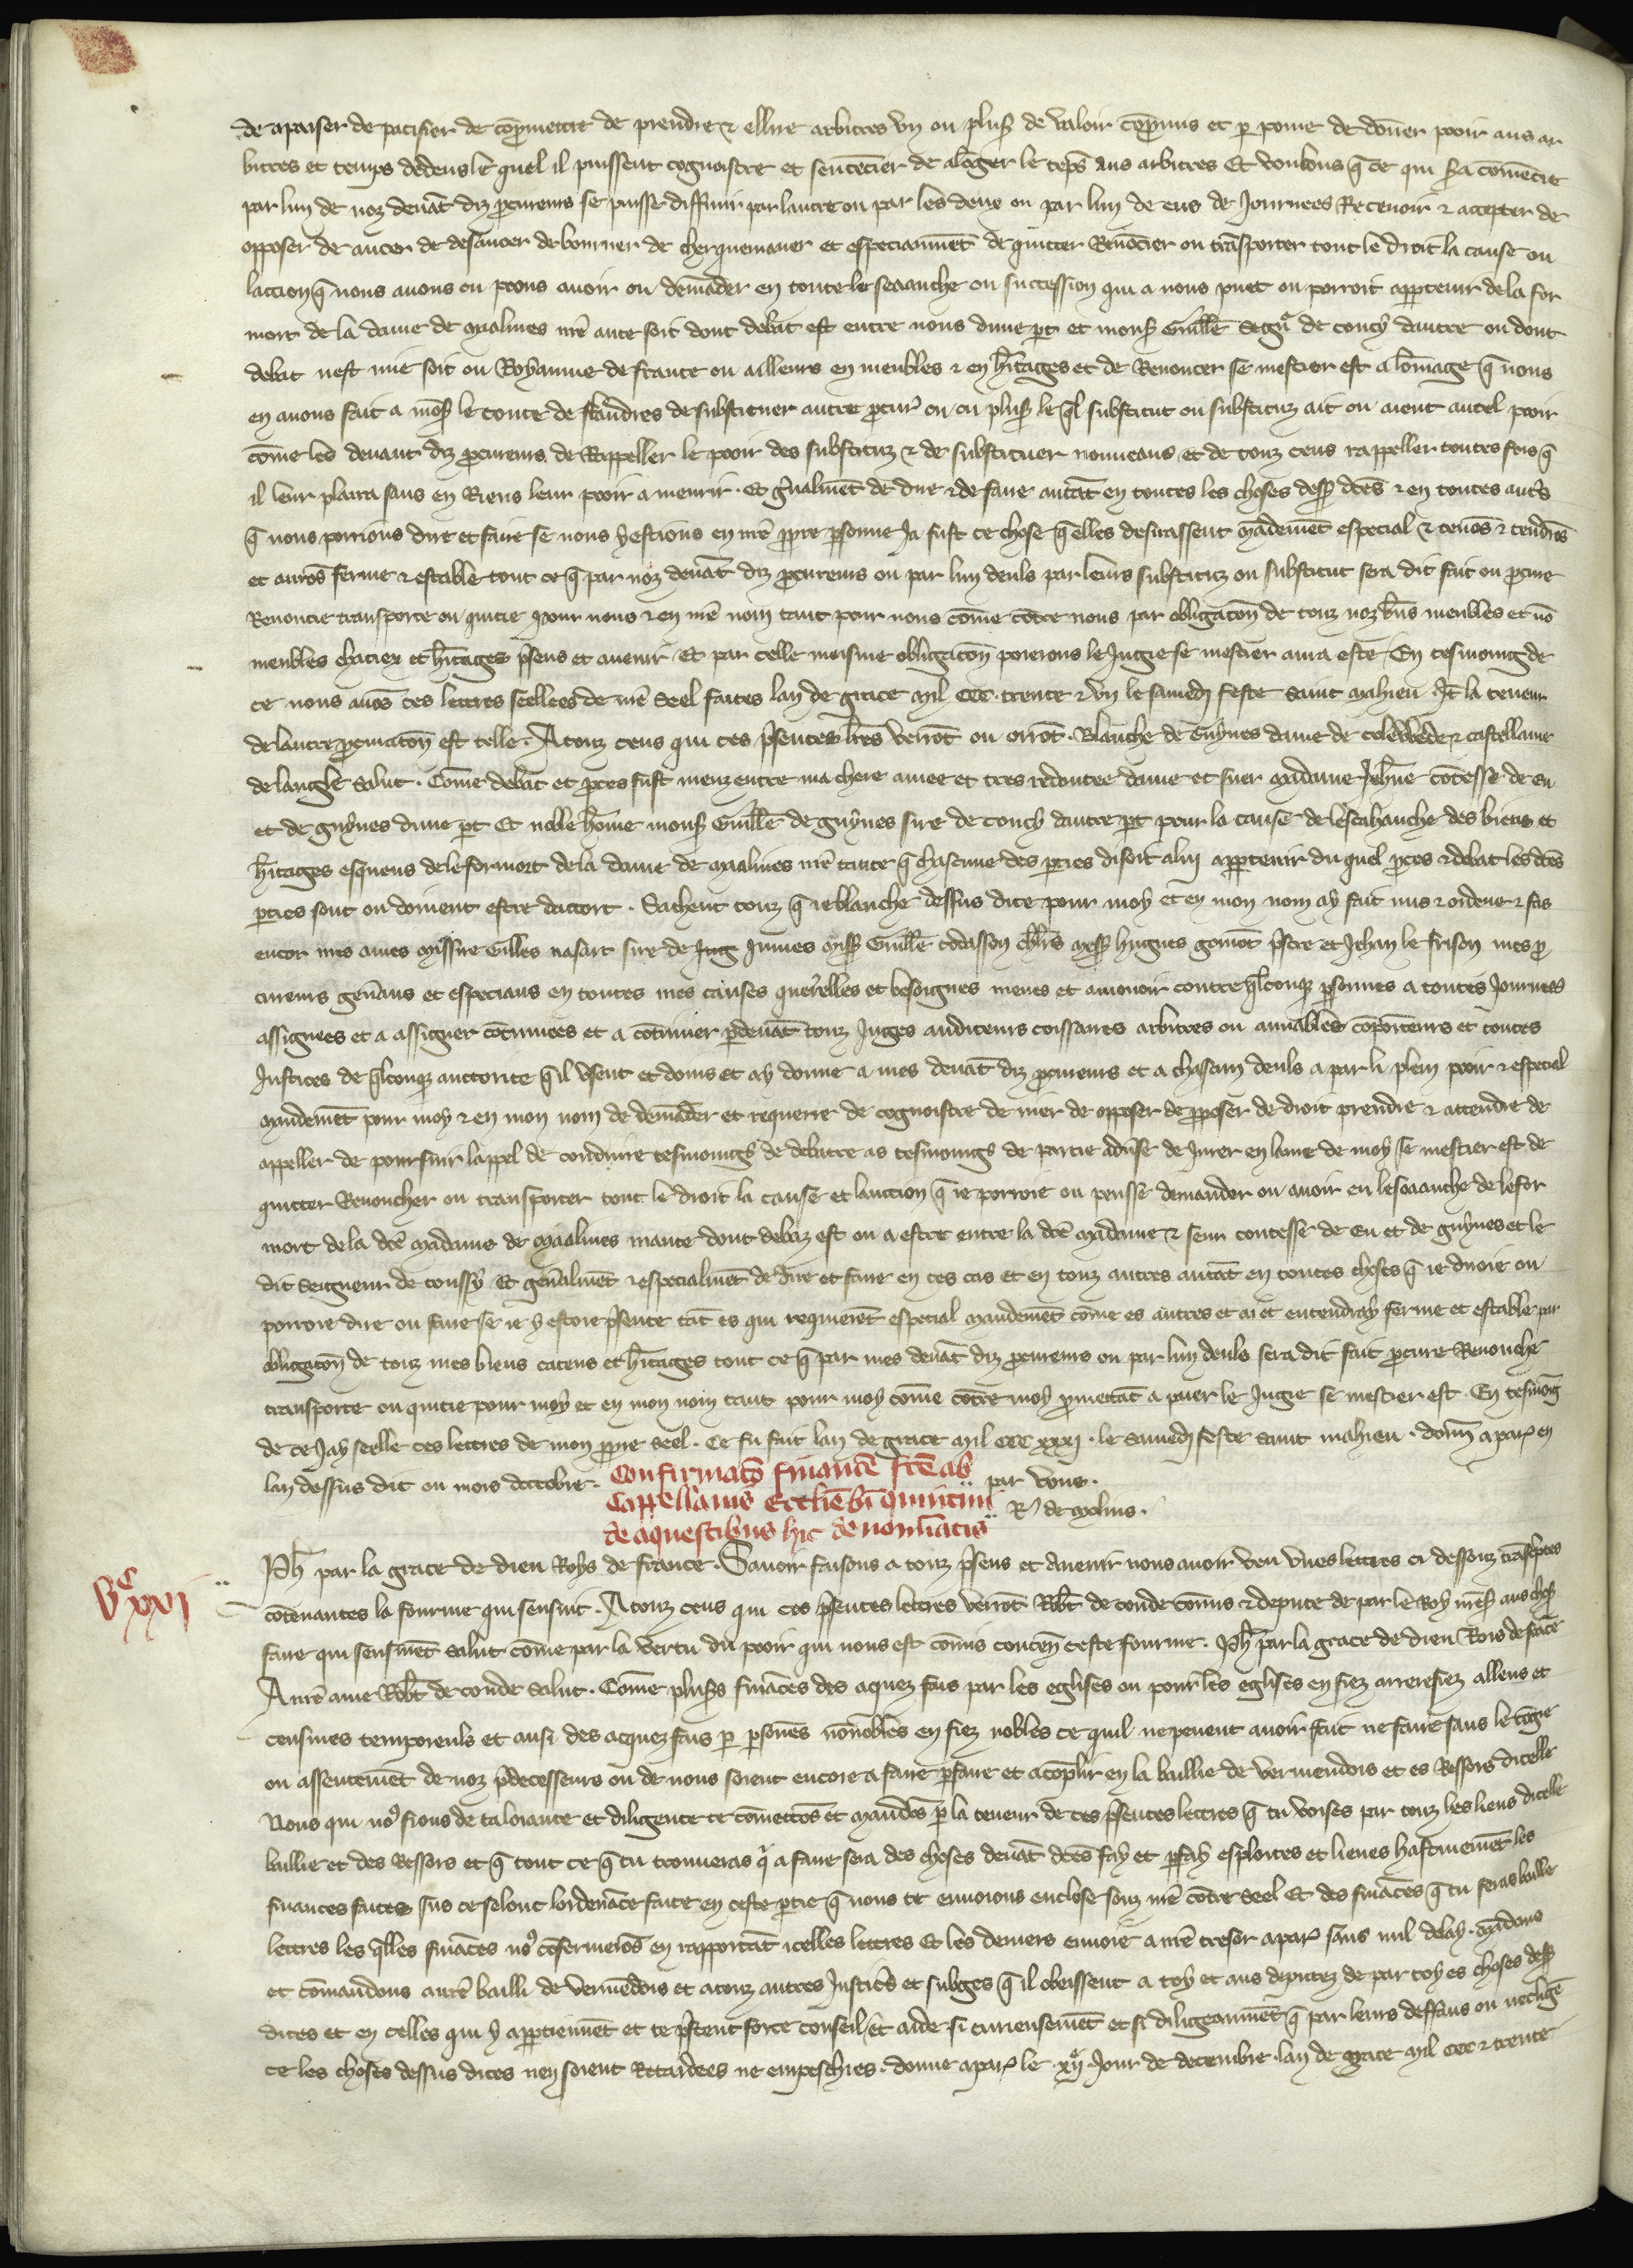 de apaiser de pacifier de cōpromettre de prendre & eslire arbitres vn ou plus᷒ de valoir cōpromis et p̱ poine de doñer pooir aus ar
bitres et temps dedens le quel il puissent cognoistre et sentēcier de alōger le tēps aus arbitres Et voulons q̄ ce qui sera cōmēcie
par lun de noz deuāt diz ꝓcureurs se puisse diffinir par lautre ou par les deux ou par lun de eus de Iournees Receuoir & accepter de
opposer de auoer de desauoer de bourner de cherquemaner et especiaumēt de quitter Renōcier ou trāsporter tout le droit la cause ou
laccion q̄ nous auons ou poons auoir ou demāder en toute le seaanche ou succession qui a nous puet ou porroit app̱tenir de la for
mort de la dame de Malines nr̄e ante soit dont debat est entre nous dune p̱t et mons᷒ Guill̄e segn̄r de Coucy dautre ou dont
debat nest mie soit ou Royaume de france ou ailleurs en meubles & en h̄itages et de Renoncer se mestier est a lōmage q̄ nous
en auons fait a mōs᷒ le conte de flandres de substituer autre ꝓcur᷒ ou ou plus᷒ le q̄l substitut ou substituz ait ou aient autel pooir
cōme les deuant diz ꝓcureurs de Rappeller le pooir des substituz & de substituer nouueaus et de touz ceus rappeller toutes fois q̄
il leur plaira sans en Riens leur pooir amenrir. Et ḡnalmēt de dire & de faire autāt en toutes les choses dess᷒ dc̄es & en toutes aut᷒s
q̄ nous porrions dire et faire se nous y estions en nr̄e ꝓpre p̱sonne Ja fust ce chose q̄ elles desirassent mādemēt especial & tenōs & tendrōs
et aurōs ferme & estable tout ce q̄ par noz deuāt diz ꝓcureurs ou par lun deuls par leurs substituz ou substitut sera dit fait ou ꝓcure
Renoncie transporte ou quitie pour nous & en nr̄e nom tant pour nous cōme cōtre nous par obligacōn de touz noz biēs meubles et nō
meubles chatiex et h̄itages p̄sens et auenir Et par celle meisme obligacōn poierons le Iugie se mestier aura este En tesmoing de
ce nous auōs ces lettres seellees de nr̄e seel faites lan de grace Mil CCC. trente & vn le samedi feste saint Mahieu It̄ la teneur
de lautre ꝓcuracōn est telle. A touz ceus qui ces p̄sentes lr̄es verrōt ou orrōt. Blanche de Guynes dame de celebbede & castellaine
de langle Salut. Cōme debat et ꝓces fust meuz entre ma chere amee et tres redoutee dame et suer Madame Jeh̄ne cōtesse de Eu
et de Guynes dune p̱t Et noble hōme mons᷒ Guill̄e de Guynes sire de Coucy dautre p̱t pour la cause de lescahanche des biens et
h̄itages esqueus de le formort de la dame de Maalines nr̄e tante q̄ chascune des p̱ties disoit a luy app̱tenir du quel ꝓces & debat les dc̄es
p̱ties sont ou doiuent estre dacort. Sachent touz q̄ ie blanche dessus dite pour moy et en mon nom ay fait mis & ordene & fas
encor mes ames Missire Gilles nasart sire de Iug Iumes Mess᷒ Guill̄e codasson ch̄rs Mess᷒ hugues gomōt p̄stre et Jehan le frison mes ꝓ
cureurs gen̄aus et especiaus en toutes mes causes querelles et besoignes meues et amouoir contre q̄lconq̄ p̱sonnes a toutes Iournees
assignees et a assigner cōtinuees et a cōtinuer p̱deuāt touz Iuges auditeurs coissaires arbitres ou amiables cōpositeurs et toutes
Iustices de q̄lconq̄ auctorite q̄ il vsent et donis et ay donne a mes deuāt diz ꝓcureurs et a chascun deuls a par li plein pooir & especial
Mandemēt pour moy & en mon nom de demāder et requerre de cognoistre de nier de opposer de ꝓposer de droit prendre & attendre de
appeller de poursuir lappel de conduire tesmoings de debatre as tesmoings de partie aduse de Iurer en lame de moy se mestier est de
quitter Renoncher ou transporter tout le droit la cause et laccion q̄ ie porroie ou peusse demander ou auoir en lescaanche de le for
mort de la dc̄e Madame de Maalines mante dont debaz est ou a estre entre la dc̄e Madame & seur contesse de Eu et de Guynes et le
dit Seigneur de Coussy Et gen̄almēt & especialmēt de dire et faire en ces cas et en touz autres autāt en toutes choses q̄ ie diroie ou
porroie dire ou faire se ie y estoie p̄sente tāt es qui requierēt especial Mandemēt cōme es autres et ai et entendray ferme et estable par
obligacōn de touz mes biens cateus et h̄itages tout ce q̄ par mes deuāt diz ꝓcureurs ou par lun deuls sera dit fait ꝓcure Renonchie
transporte ou quitie pour moy et en mon nom tant pour moy cōme cōtre moy ꝓmettāt a paier le Iugie se mestier est. En tesmoīg
de ce Jay seelle ces lettres de mon ꝓpre seel. Ce fu fait lan de grace Mil CCC xxxj. le samedi feste saint mahieu. Donn̄ a par᷒ en
lan dessus dit ou mois doctobre.
par vous.
R᷒ de Molins.
Confirmatō financie fc̄e ab
Cappellanis Ecclīe bī Quintini
de aquestibus hic denominatis
Vᶜ xxj
Ph̄ par la grace de dieu Roys de france. Sauoir faisons a touz p̄sens et Auenir nous auoir veu vnes lettres ci dessouz trāscriptes
cōtenantes la fourme qui sensuit. A touz ceus qui ces p̄sentes lettres verrōt Rob̄t de conde cōmis & depute de par le Roy nr̄es᷒ aus chos᷒
faire qui sensuiuēt salut cōme par la vertu du pooir qui nous est cōmis conten̄ ceste fourme. Ph̄ par la grace de dieu Rois de frāce
A nr̄e ame Rob̄t de conde salut. Cōme plus᷒s finaces des aquez fais par les eglises ou pour les eglises en fiez arrerefiez alleus et
censiues temporeuls et ausi des aquez fais p̱ p̱sones nōnobles en fiez nobles ce quil ne peuent auoir fait ne faire sans le cōge
ou assentemēt de noz p̄decesseurs ou de nous soient encore a faire p̱faire et acōplir en la baillie de vermendois et es Ressors dicelle
Nous qui no᷒ fions de ta loiaute et diligence te cōmettōs et mandōs p̱ la teneur de ces p̄sentes lettres q̄ tu voises par touz les lieus dicelle
baillie et des Ressors et q̄ tout ce q̄ tu trouueras q̄ a faire sera des choses deuāt dc̄es fay et p̱fay esploites et lieues hastiuemēt les
finances faites sus ce selonc lordenāce faite en ceste p̱tie q̄ nous te enuoions enclose souz nr̄e cōtre seel Et des finaces q̄ tu feras baille
lettres les q̄lles finaces no᷒ cōfermerōs en rapportāt icelles lettres Et les deniers enuoie a nr̄e tresor a par᷒ sans nul delay. Mādons
et cōmandons a nr̄e bailli de vermēdois et a touz autres Iusticiēs et subges q̄ il obeissent a toy et aus deputez de par toy es choses dess᷒
dites et en celles qui y app̱tiennēt et te p̄stent force conseil et aide si curieusemēt et si diligeaumēt q̄ par leurs deffaus ou necligē
ce les choses dessus dites nen soient Retardees ne empeschies. donne a par᷒ le xij Jour de decembre lan de grace Mil CCC & trente